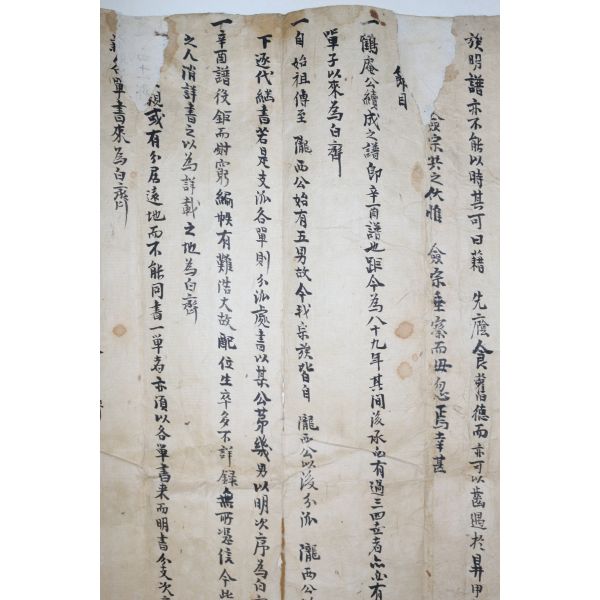 族明譜亦不能以時其可曰藉 先廕食舊德而亦可以齒遇於昇甲
僉宗共之伏惟 僉宗垂察而毋忽焉幸甚
節目
一 鶴庵公續成之譜卽辛酉譜也距今爲八十九年其間後承亦有過三四世者亦有
單子以來為白齊
一 自始祖傳至 隴西公始有五男故今我宗族皆自 隴西公以後分派 隴西公
下逐代継書若是支派各單則分派處書以某公第幾男以明次序為白
一 辛酉譜役鉅而財窮編帙有難浩大故配位生卒多不詳錄無所憑信今此
之人消詳書之以為詳載之地為白齊
親或有分居遠地而不能同書一單者亦須以各單書來而明書分支次
各單書來為白齊